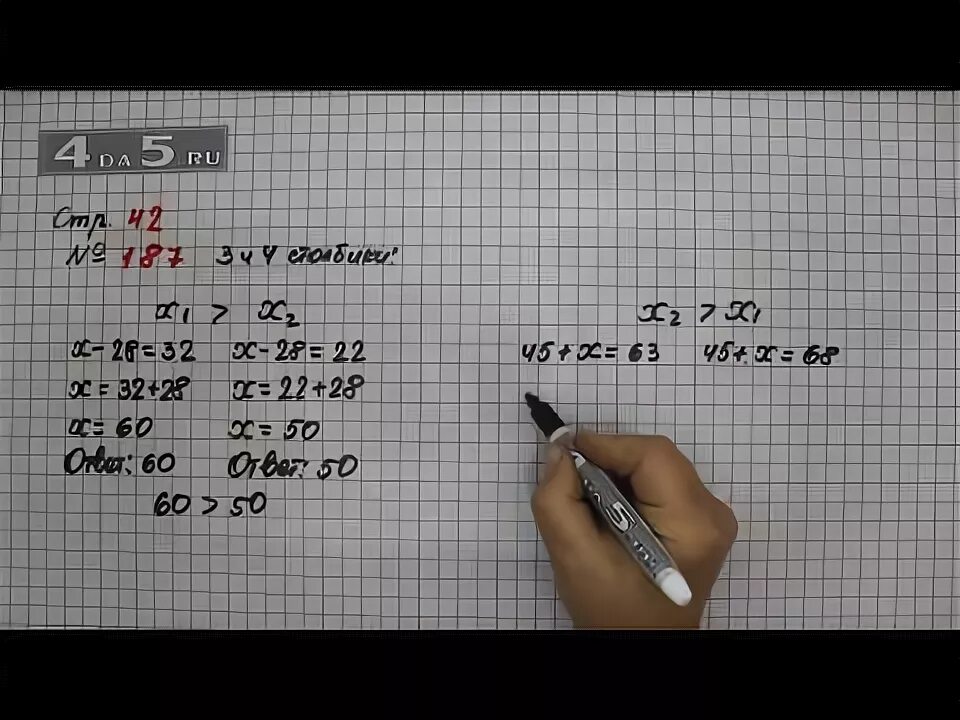 4 DA 5 RU
Стр. 42
№ 187 3 и 4 столбики:
x₁ > x₂
x - 28 = 32 x - 28 = 22
x = 32 + 28 x = 22 + 28
x = 60 x = 50
Ответ: 60 Ответ: 50
60 > 50
x₂ > x₁
45 + x = 63 45 + x = 68
5